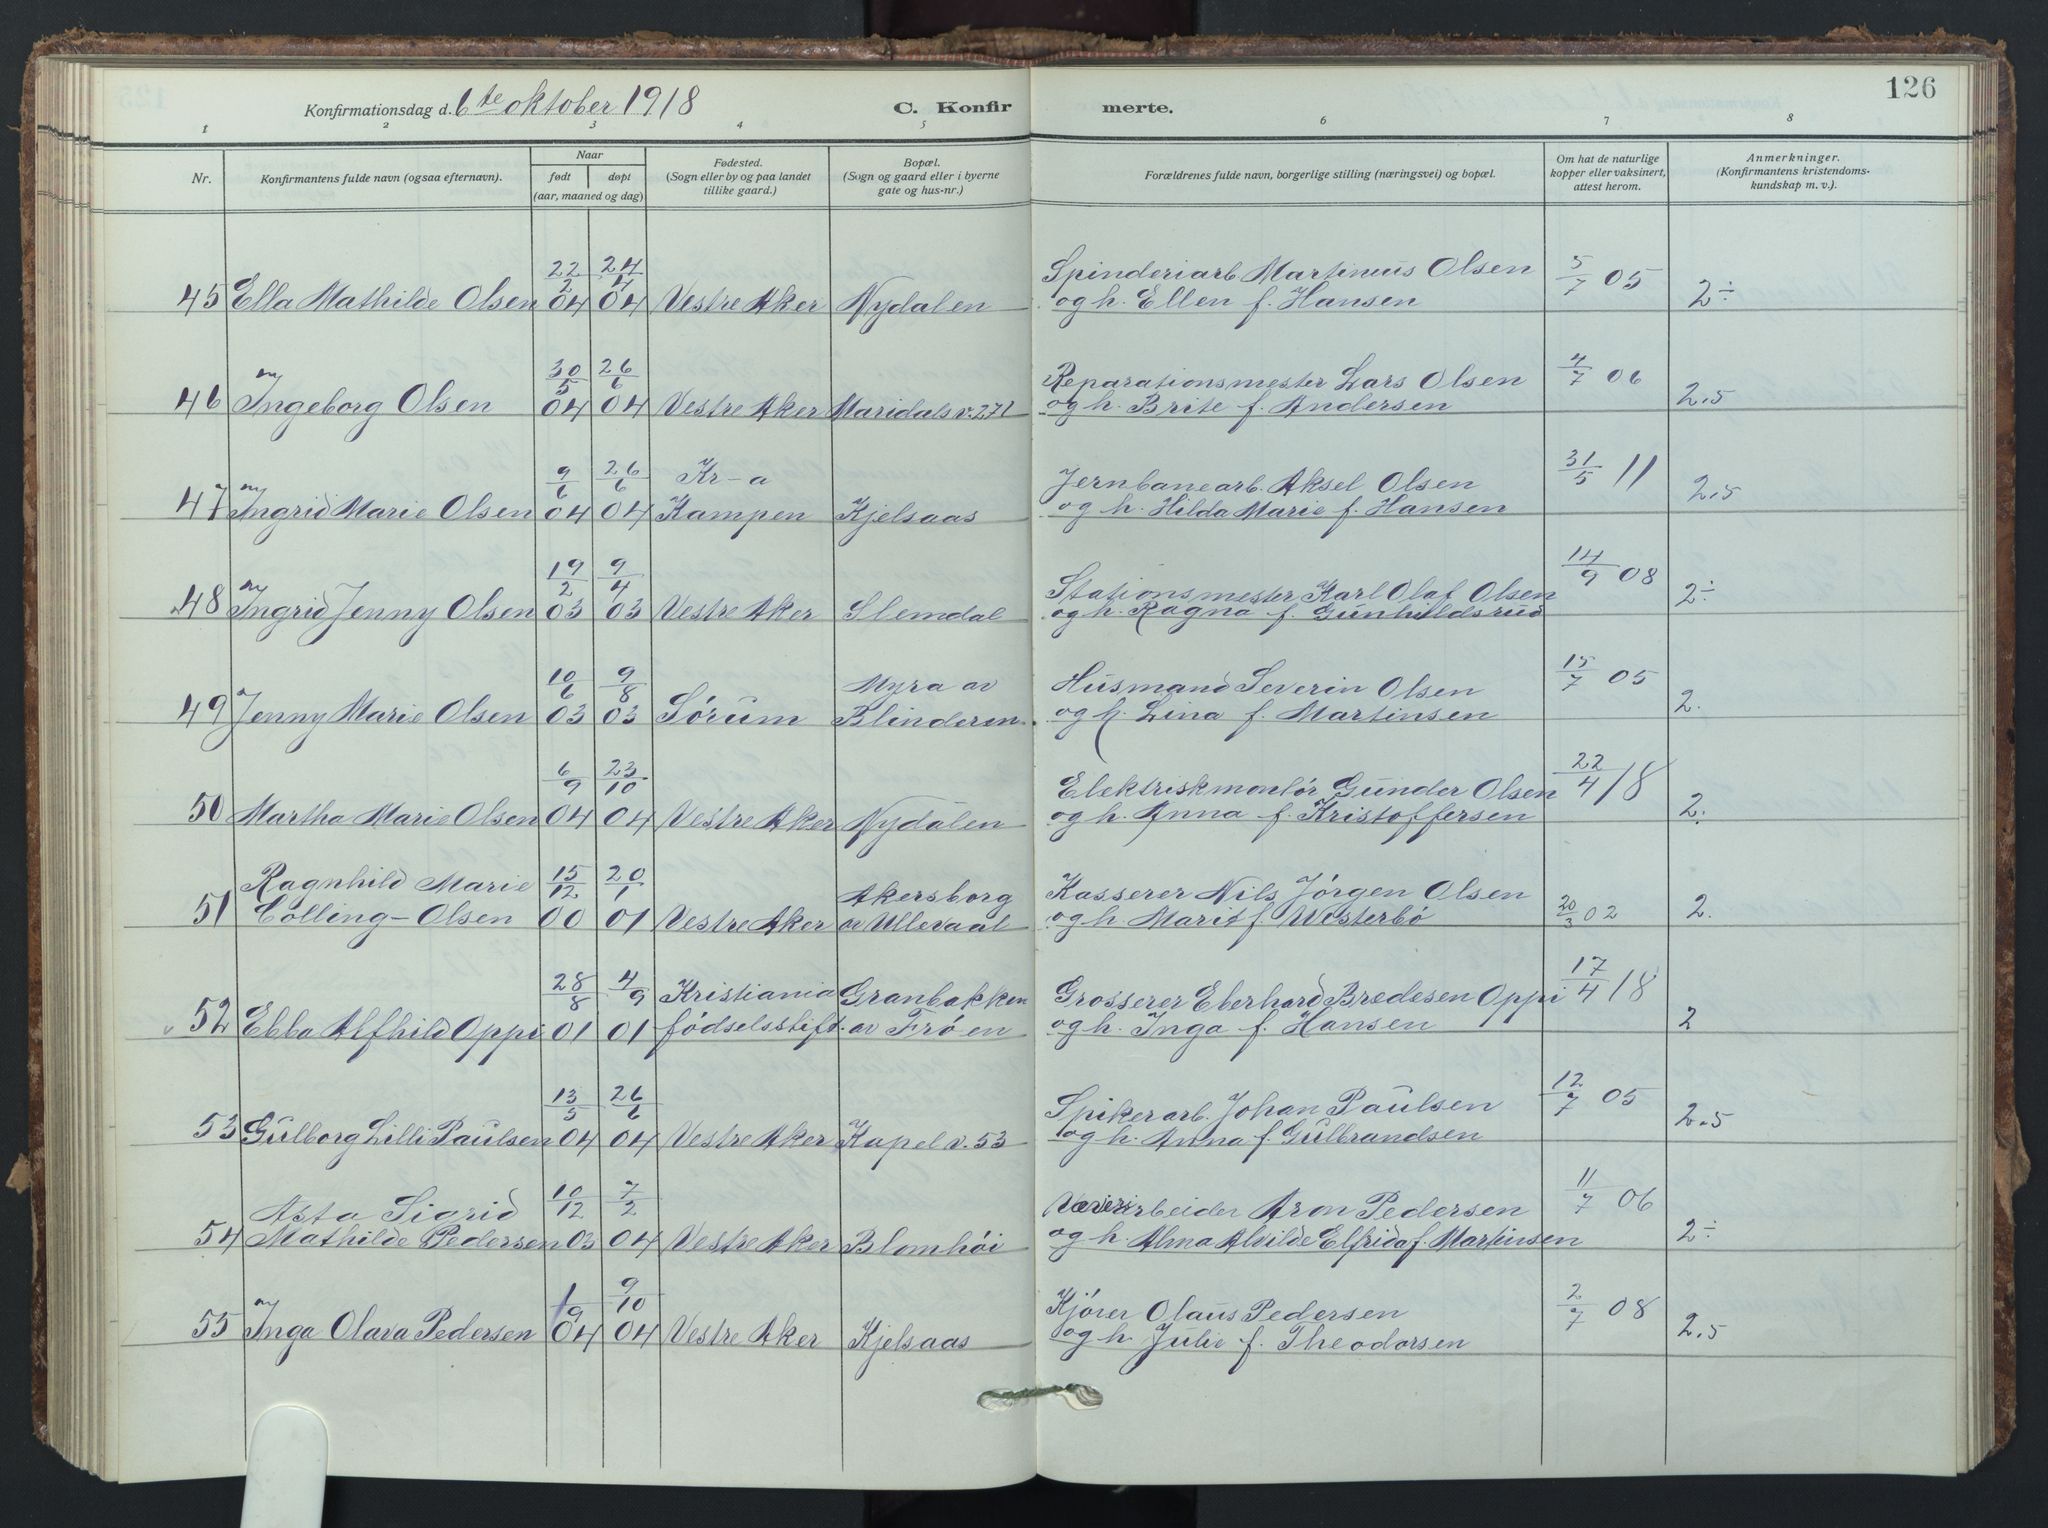 126
Konfirmationsdag d. 6te oktober 1918 C. Konfirmerte.
1 2 3 4 5 6 7 8
Nr.
Konfirmantens fulde navn (ogsaa efternavn).
Naar
født døpt
(aar, maaned og dag)
Fødested.
(Sogn eller by og paa landet
tillike gaard.)
Bopæl.
(Sogn og gaard eller i byerne
gate og hus-nr.)
Forældrenes fulde navn, borgerlige stilling (næringsvei) og bopæl.
Om hat de naturlige
kopper eller vaksinert,
attest herom.
Anmerkninger.
(Konfirmantens kristendoms-
kundskap m. v.).
22/2 24/4 Spinderiarb. Martinius Olsen 5/7 05
45 Ella Mathilde Olsen 04 04 Vestre Aker Nydalen og h. Ellen f. Hansen 2÷
30/5 26/6 Reparationsmester Lars Olsen 4/7 06
46 Ingeborg Olsen 04 04 Vestre Aker Maridals v. 271 og h. Brite f. Andersen 2.5
9/6 26/6 Kr-a Jernbanearb. Aksel Olsen 31/5 11
47 Ingrid Marie Olsen 04 04 Kampen Kjelsaas og h. Hilda Marie f. Hansen 2,5
19/2 9/4 Stationsmester Karl Olaf Olsen 14/9 08
48 Ingrid Jenny Olsen 03 03 Vestre Aker Slemdal og h. Ragna f. Gunhildsrud 2÷
10/6 9/8 Myra av Husmand Severin Olsen 15/7 05
49 Jenny Marie Olsen 03 03 Sørum Blinderen og h. Lina f. Martinsen 2.
6/9 23/10 Elektriskmontør Gunder Olsen 22/4 18
50 Martha Marie Olsen 04 04 Vestre Aker Nydalen og h. Anna f. Kristoffersen 2.
Ragnhild Marie 15/12 20/1 Akersborg Kasserer Nils Jørgen Olsen
51 Colling-Olsen 00 01 Vestre Aker av Ullevaal og h. Marit f. Westerbø 20/3 02 2.
28/8 4/9 Kristiania Granbakken Grosserer Eberhard Bredesen Oppi 17/4 18
52 Ebba Alfhild Oppi 01 01 fødselsstift. av Frøen og h. Inga f. Hansen 2
13/5 26/6 Spikerarb. Johan Paulsen 12/7 05
53 Gulborg Lilli Paulsen 04 04 Vestre Aker Kapel v. 53 og h. Anna f. Gulbrandsen 2.5
Asta Sigrid 10/12 7/2 Væveriarbeider Aron Pedersen 11/7 06
54 Mathilde Pedersen 03 04 Vestre Aker Blomhøi og h. Alma Alvilde Elfrida f. Martinsen 2÷
1/9 9/10 Kjører Olaus Pedersen 2/7 08
55 Inga Olava Pedersen 04 04 Vestre Aker Kjelsaas og h. Julie f. Theodorsen 2.5